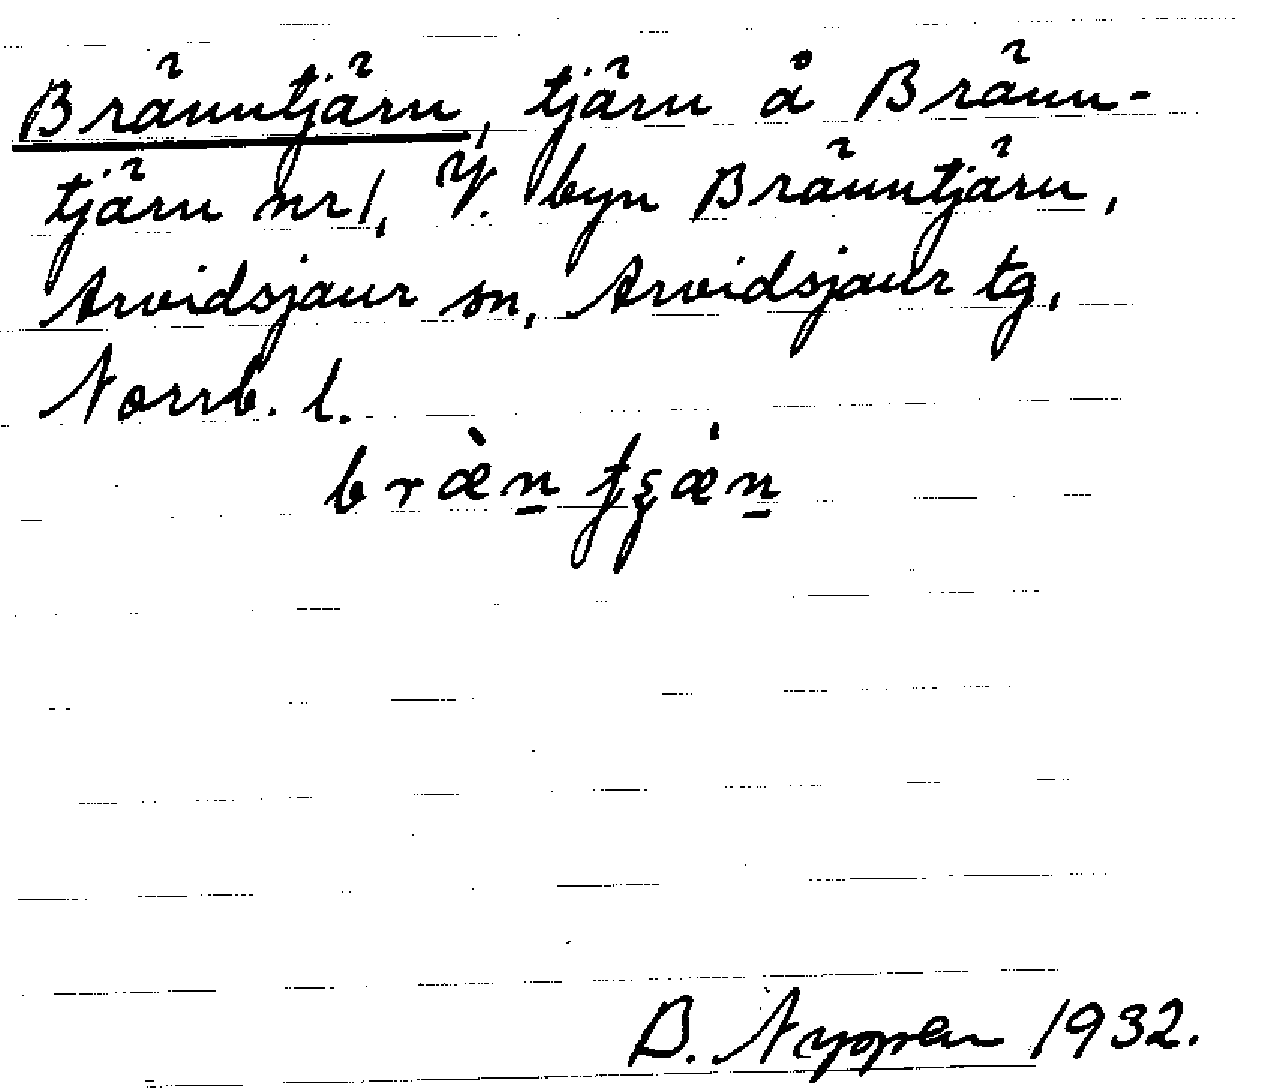 Bränntjärn, tjärn å Bränn-
tjärn nr 1, V. byn Bränntjärn,
Arvidsjaur sn, Arvidsjaur tg,
Norrb. l.
bræ̀n tʂæ̇n
B. 1932.